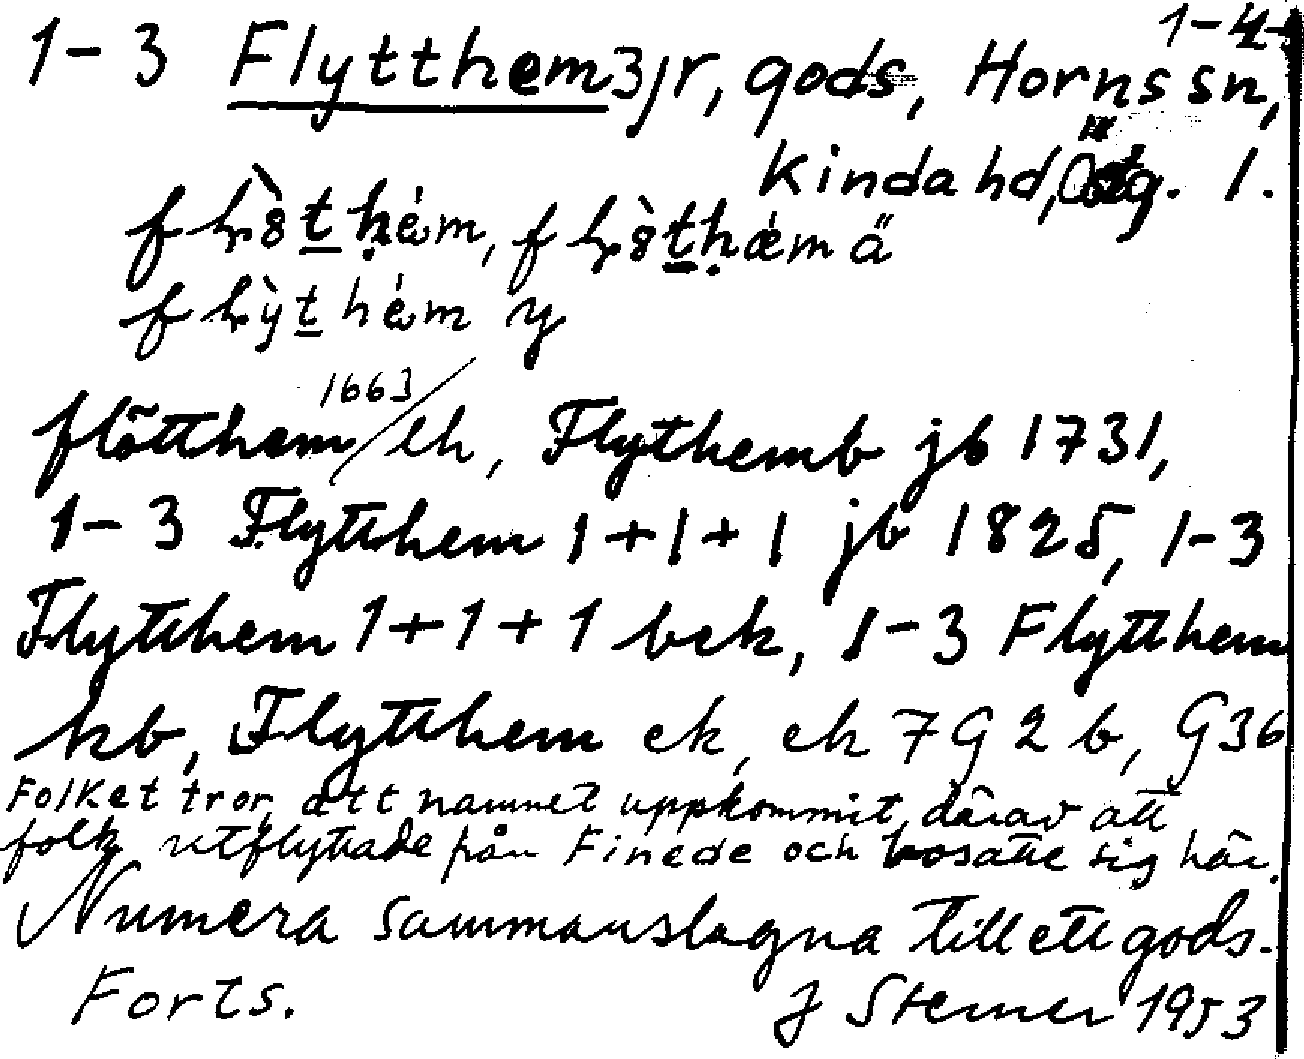 1-4
1-3 Flytthem 3jr, gods, Horns sn,
Kinda hd, Östg. 1.
ä
y
flötthem 1663/ eh, Flythemb jb 1731,
1-3 Flytthem 1+1+1 jb 1825, 1-3
Flytthem 1+1+1 bek, 1-3 Flytthem
kb, Flytthem ek, ek 7G2b, G36
Folket tror, att namnet uppkommit därav att
folk utflyttade från Finede och bosatte sig här.
Numera sammanslagna till ett gods.
Forts. J Stemer 1953